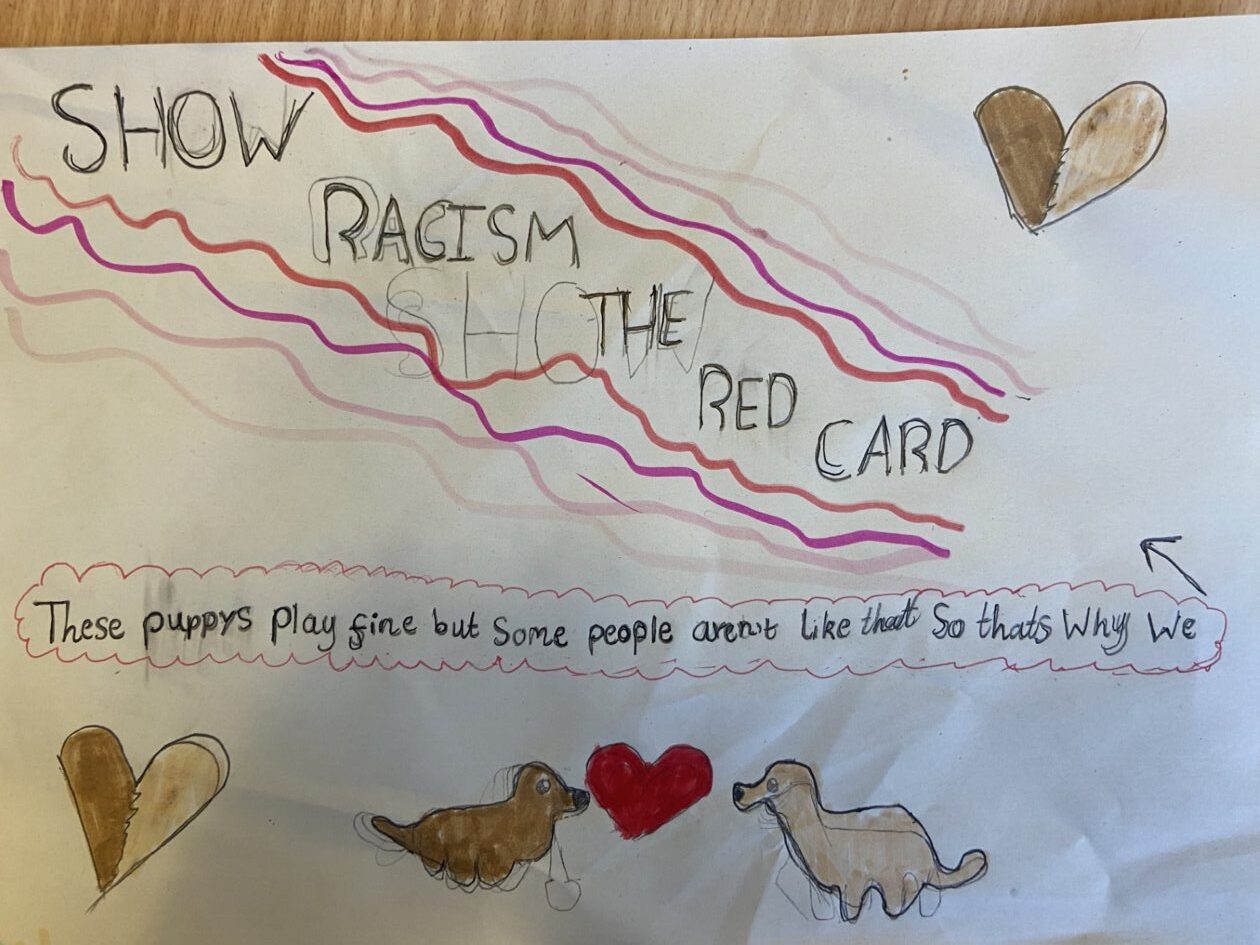 SHOW
RACISM
SHOW
THE
RED
CARD
These puppys play fine but Some people aren't like that So thats Why We